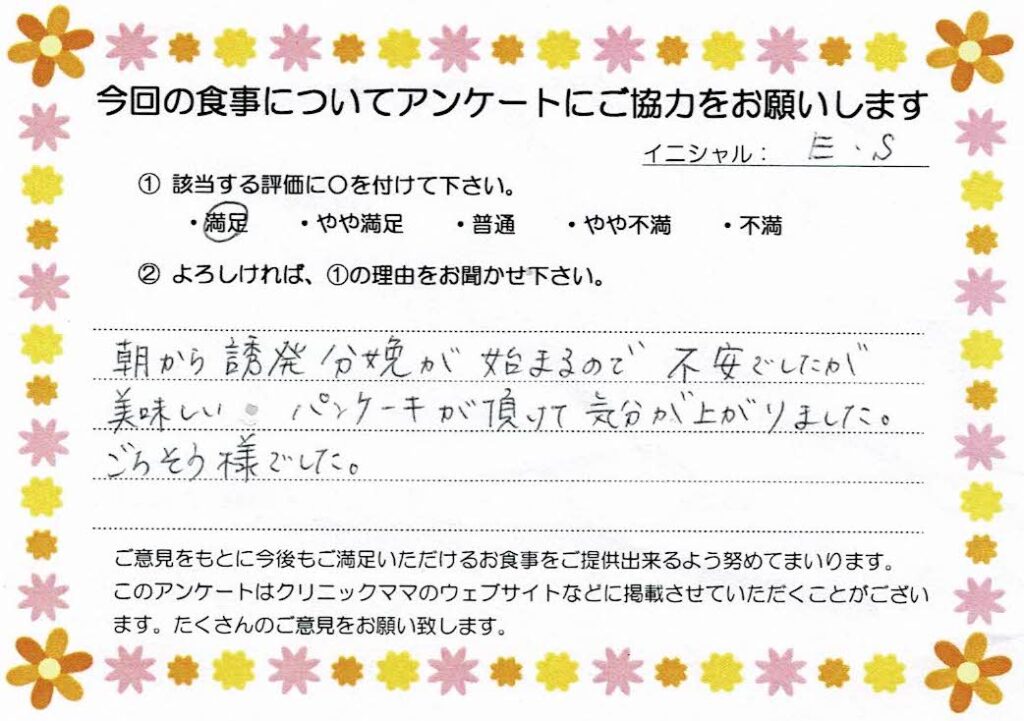 今回の食事についてアンケートにご協力をお願いします
イニシャル： E・S
① 該当する評価に〇を付けて下さい。
・満足 ・やや満足 ・普通 ・やや不満 ・不満
② よろしければ、①の理由をお聞かせ下さい。
朝から誘発分娩が始まるので不安でしたが
美味しい パンケーキが頂けて気分が上がりました。
ごちそう様でした。
ご意見をもとに今後もご満足いただけるお食事をご提供出来るよう努めてまいります。
このアンケートはクリニックママのウェブサイトなどに掲載させていただくことがござい
ます。たくさんのご意見をお願い致します。